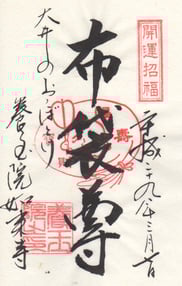 開運招福
平成二十九年三月吉日
布袋尊
大井のおおぼとけ
養玉院如来寺